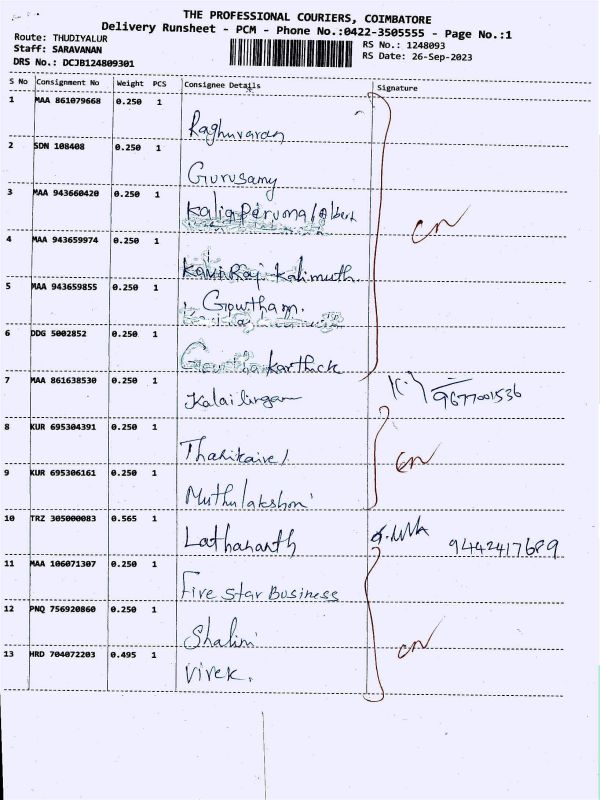 THE PROFESSIONAL COURIERS, COIMBATORE
Delivery Runsheet - PCM - Phone No.:0422-3505555 - Page No.:1
Route: THUDIYALUR
Staff: SARAVANAN
DRS No.: DCJB124809301
RS No.: 1248093
RS Date: 26-Sep-2023
S No Consignment No Weight PCS Consignee Details Signature
1 MAA 861079668 0.250 1
Raghuvaran
2 SDN 108408 0.250 1
Gurusamy
3 MAA 943660420 0.250 1
Kaliaperuma/Albert
CN
4 MAA 943659974 0.250 1
Kaviraj Kalimuth
5 MAA 943659855 0.250 1
Gowtham.
6 DDG 5002852 0.250 1
Gowtham Karthick
7 MAA 861638530 0.250 1
Kalailingam
9677001536
8 KUR 695304391 0.250 1
Tharikaivel
CN
9 KUR 695306161 0.250 1
Muthulakshmi
10 TRZ 305000083 0.565 1
Lathananth
9442417689
11 MAA 106071307 0.250 1
Five Star Business
12 PNQ 756920860 0.250 1
Shalini
CN
13 HRD 704072203 0.495 1
Vivek.